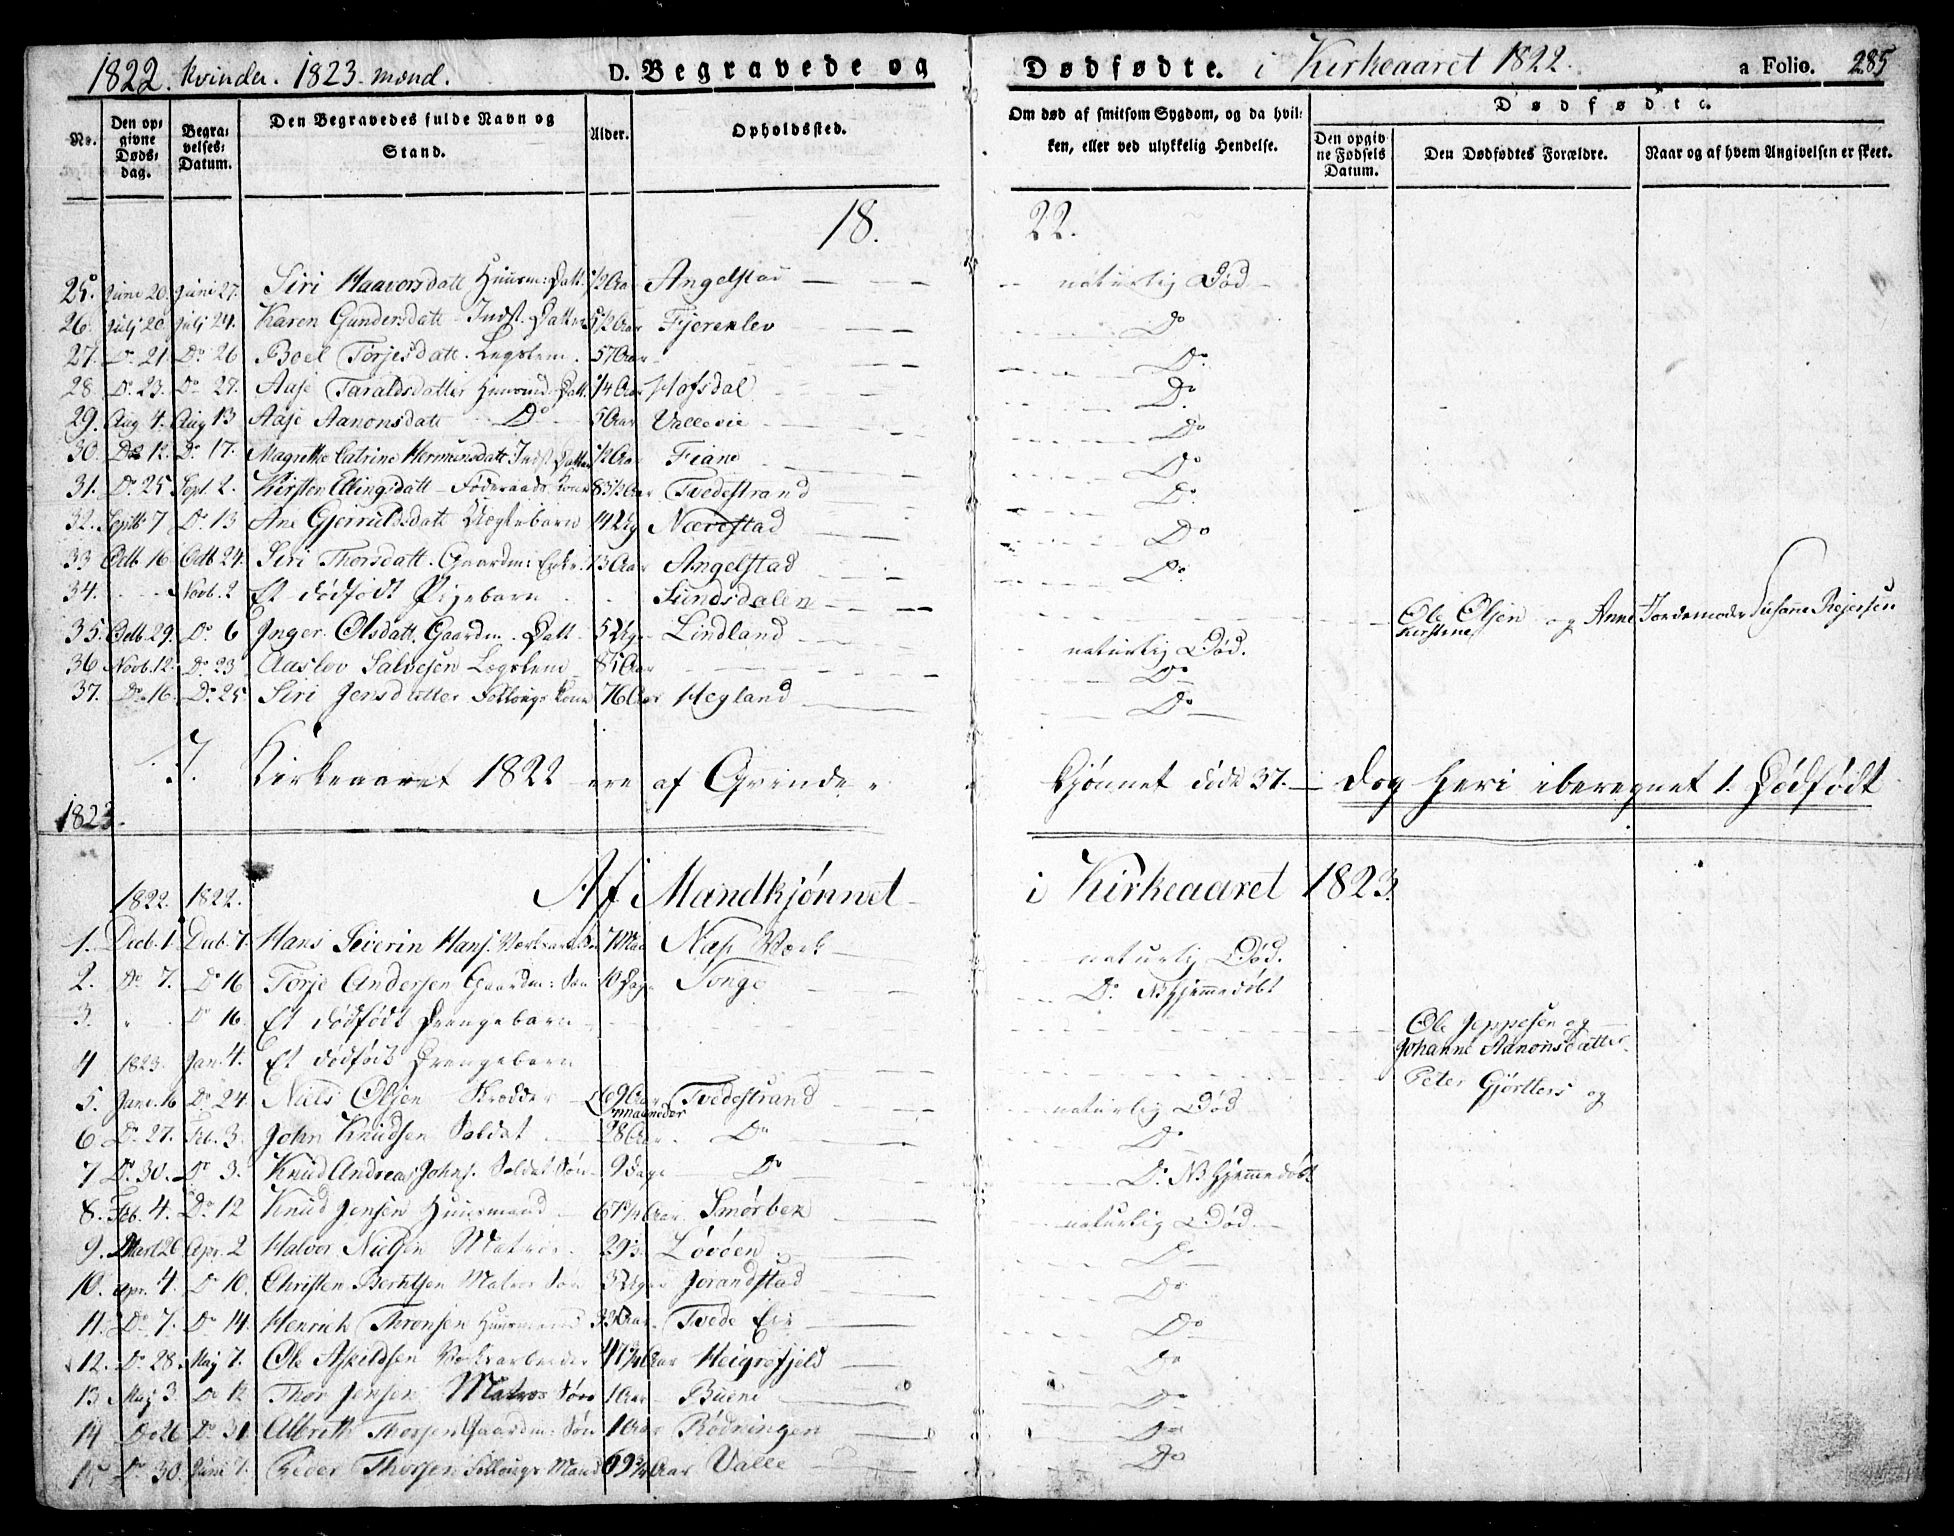 1822. kvinder. 1823. mænd. D. Begravede og Dødfødte. i Kirkeaaret 1822. a Folio. 285
No. Den opgivne Døds-dag. Begravelses-Datum. Den Begravedes fulde Navn og Stand. Alder. Opholdssted. Om død af smitsom Sygdom, og da hvilken, eller ved ulykkelig Hendelse. Dødfødte.
Den opgivne Fødsels Datum. Den Dødfødtes Forældre. Naar og af hvem Angivelsen er skeet.
18. 22.
25. Juni 20. Juni 27. Siri Haavorsdatt Huusm: Datt. 1/2 Aar Angelstad naturlig Død
26. Julj 20 Julj 24. Karen Gundersdatt Indst. Datter 5 1/2 Aar Fjerenlev Do
27. Do 21. Do 26 Boel Torjesdatt. Legslem. 57 Aar Do
28 Do 23. Do 27. Aase Taraldsdatter Huusmd. Datt. 1/4 Aar Hofsdal Do
29. Aug 4. Aug 13 Aase Aanonsdatt Do 5 Aar Vallevie Do
30. Do 12. Do 17. Magrethe Catrine Hermunsdatt Indst Datter 1/2 Aar Fiane Do
31. Do 25 Sept. 2. Kirsten Ellingsdatt Føderaads Kone 83 1/2 Aar Tvedestrand Do
32. Septb 7 Do 13 Ane Gjerruldsdatt Uægtebarn 14 Ug Nærestad Do
33 Octb 16 Octb 24. Siri Thorsdatt. Gaardm: Enke. 73 Aar Angelstad Do
34. Novb. 2 Et dødfødt Pigebarn Sundsdalen Ole Olsen og Anne Kerstine Jordemoder Susanne Rejersen
35. Octb. 29. Do 6 Inger Olsdatt. Gaardm. Datt. 5 Uger Lindland naturlig Død.
36 Novb. 12. Do 23 Aaslov Salvesen Legslem 85 Aar Do
37. Do 16. Do 25 Siri Jensdatter Selveigs Kone 76 Aar Hegland Do
I Kirkeaaret 1822 ere af Qvinde-Kjønnet døde 37. dog heri iberegnet 1. Dødfødt
1823.
1822. 1822. Af Mandkjønnet i Kirkeaaret 1823.
1. Decb. 1. Decb. 7. Hans Seierin Hans. Værksarb. Søn 7 Maa Næs Værk naturlig Død.
2. Do 7. Do 16 Torje Andersen Gaardm: Søn 10 Dage Songe Do NB hjemmedøbt
3. " Do 16. Et dødfødt Drengebarn Ole Jeppesen og Johanne Aanonsdatter
4 1823. Jan. 4. Et dødfødt Drengebarn Peter Gjörtlers og
5. Janv. 16 Do 24. Niels Olsen Skrædder 69 Aar maaneder Tvedestrand naturlig Død
6 Do 27. Feb. 3. John Knudsen Soldat 28 Aar. Do Do
7 Do 30. Do 3. Knud Andreas Johns. Soldat Søn 9 dage Do Do NB hjemmedøbt
8. Feb. 4. Do 12 Knud Jensen Huusmand 67 3/4 Aar. Smørbek naturlig Død.
9. Mart 26 Apr. 2 Halvor Nielsen Matros 29 Løvøen Do
10. Apr. 4. Do 10. Christen Berntsen Matros Søn 5 Uger Jorandstad Do
11. Do 7. Do 14. Henrich Thronsen Huusmand 33 Aar. Tvede Eie Do
12. Do 28. Maj 7. Ole Askildsen Værksarbeider 47 3/4 Aar Heigrefjeld Do
13 Maj 3. Do 12 Thor Jensen Matros Søn 1 Aar Buene Do
14 Do 26 Do 31. Albreth Thorsen Gaardm: Søn 1 Aar Rødningen Do
15 Do 30. Juni 7. Peder Thorsen Selveigs Mand 69 3/4 Aar Valle Do